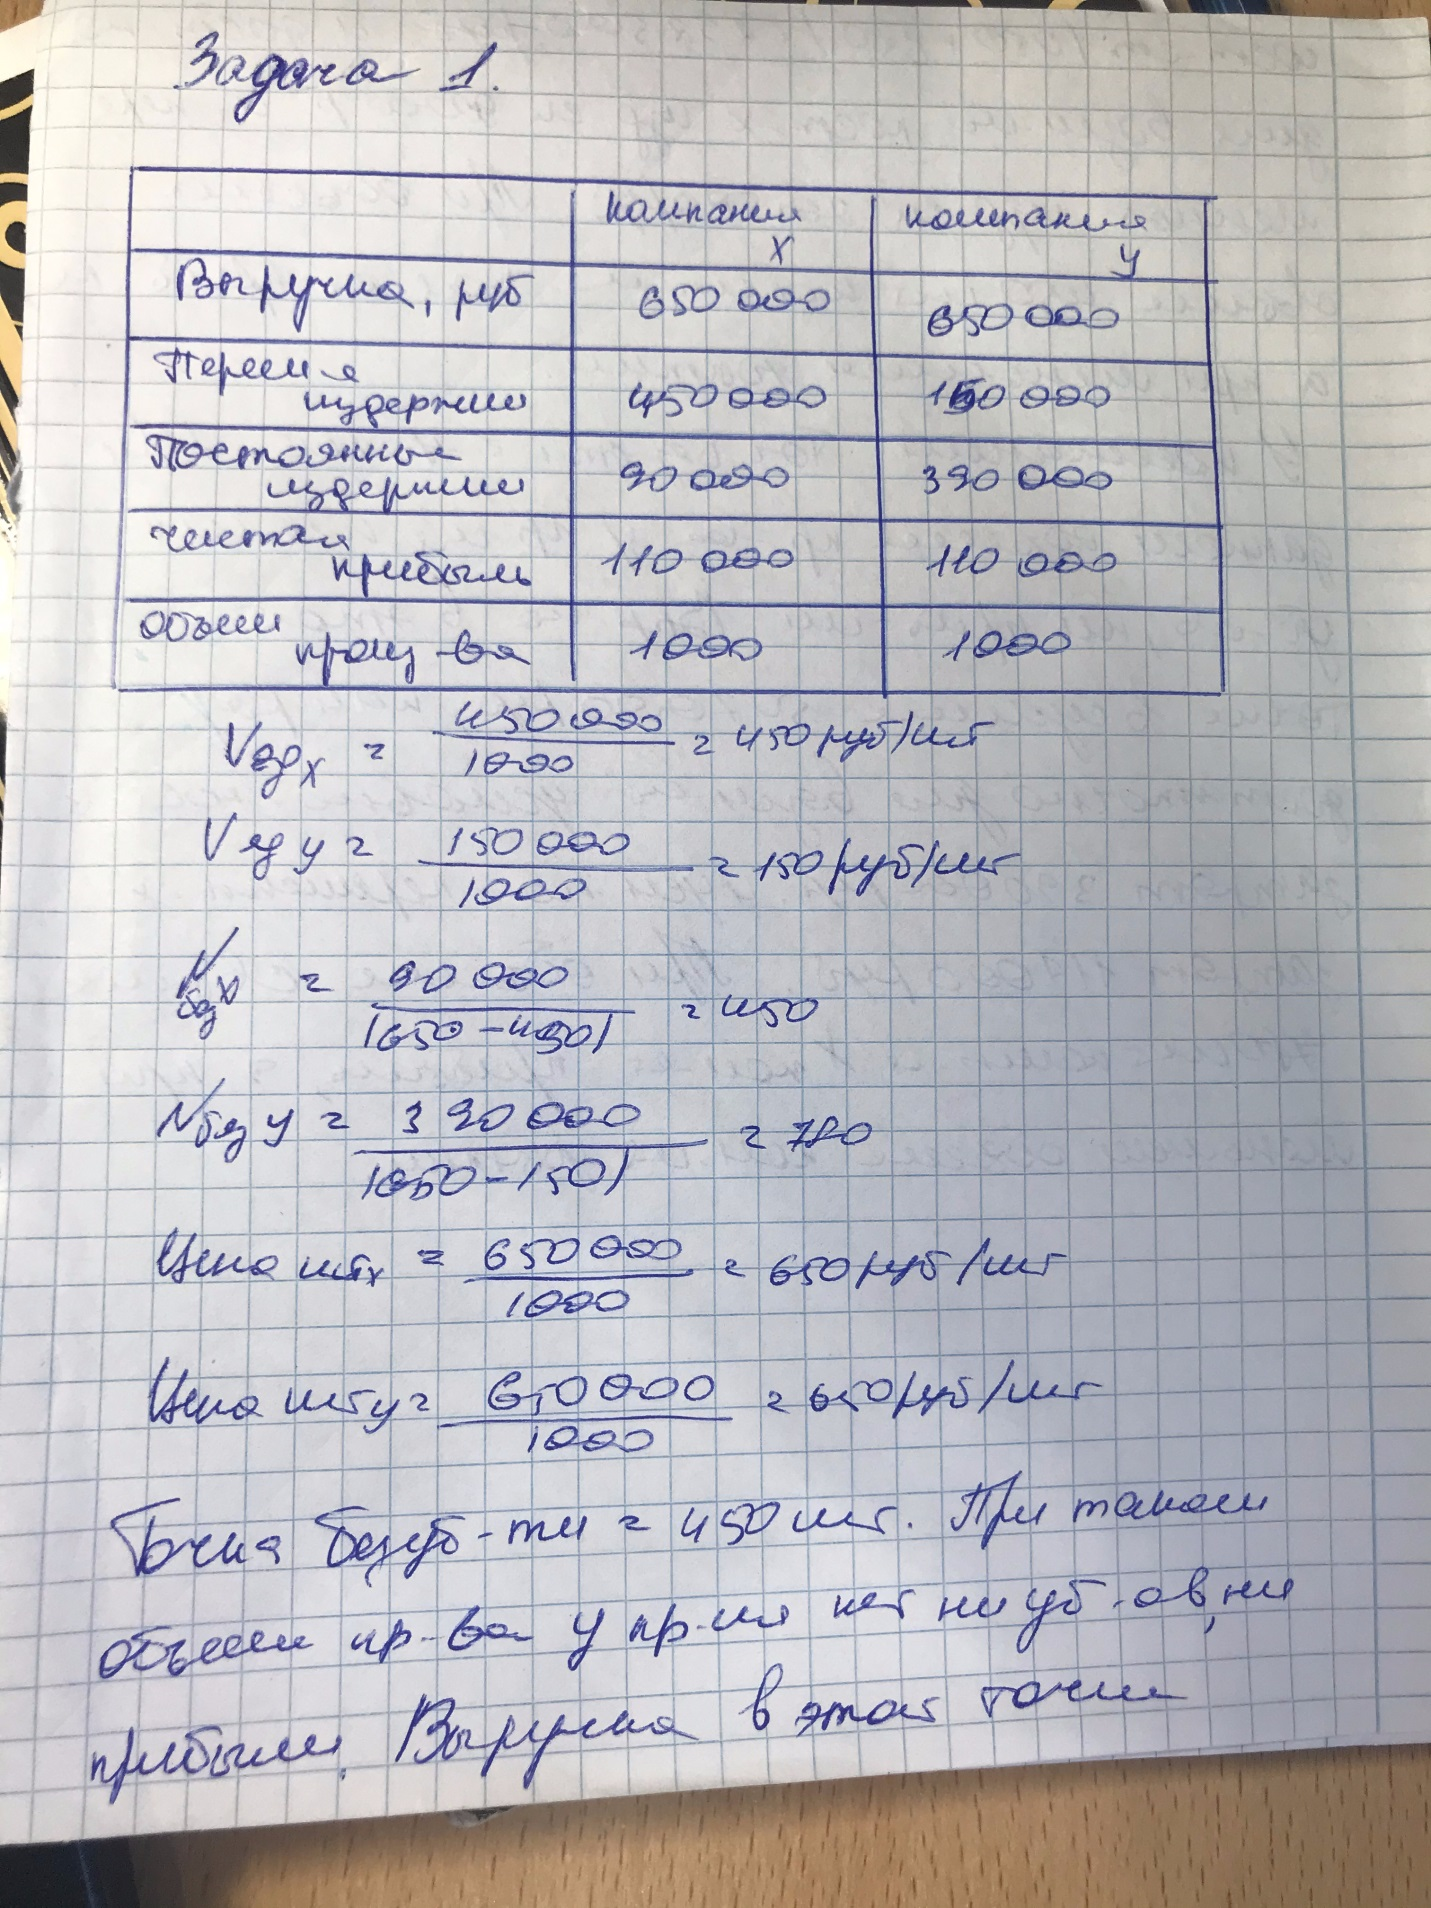 Задача 1.
компания X
компания У
Выручка, руб 650 000 650 000
Перем-я издержки 450 000 150 000
Постоянные издержки 90 000 390 000
чистая прибыль 110 000 110 000
объем произ-ва 1000 1000
Vедх = 450 000 / 1000 = 450 руб/шт
Vед у = 150 000 / 1000 = 150 руб/шт
Nбез х = 90 000 / (650 - 450) = 450
Nбез у = 390 000 / (650 - 150) = 780
Цена штх = 650 000 / 1000 = 650 руб/шт
Цена шт у = 650 000 / 1000 = 650 руб/шт
Точка безуб-ти = 450 шт. При таком
объеме пр-ва у пр-ия нет ни уб-ов, ни
прибыли. Выручка в этой точке